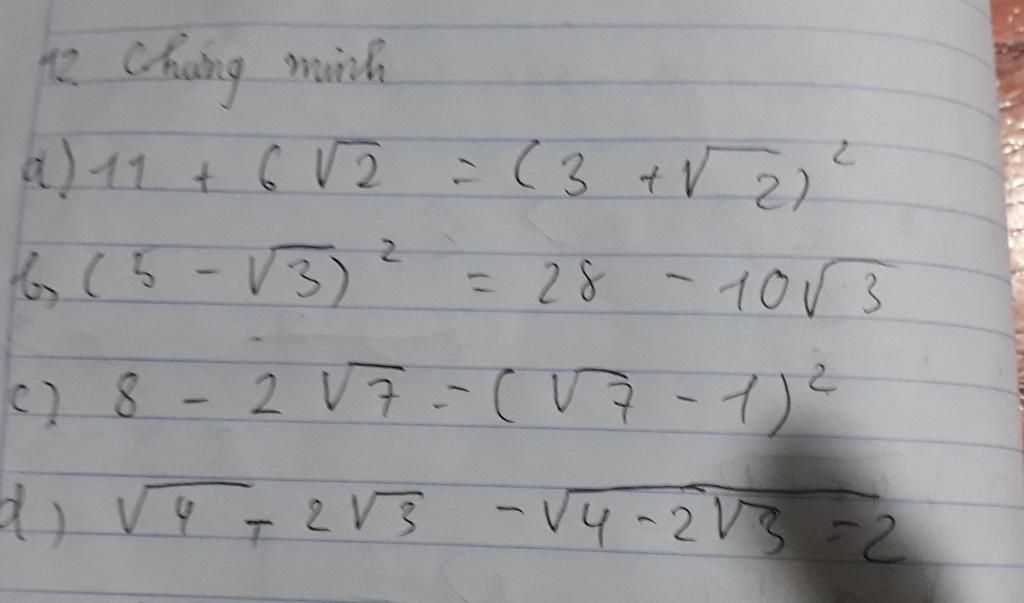 12 Chứng minh
a) 11 + 6√2 = (3 + √2)²
b, (5 - √3)² = 28 - 10√3
c) 8 - 2√7 = (√7 - 1)²
d, √4 + 2√3 - √4 - 2√3 = 2